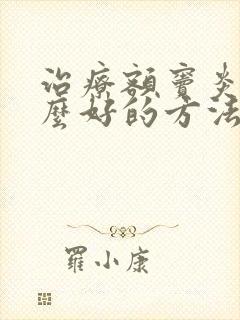 治療額竇炎
麼好的方法
羅小康